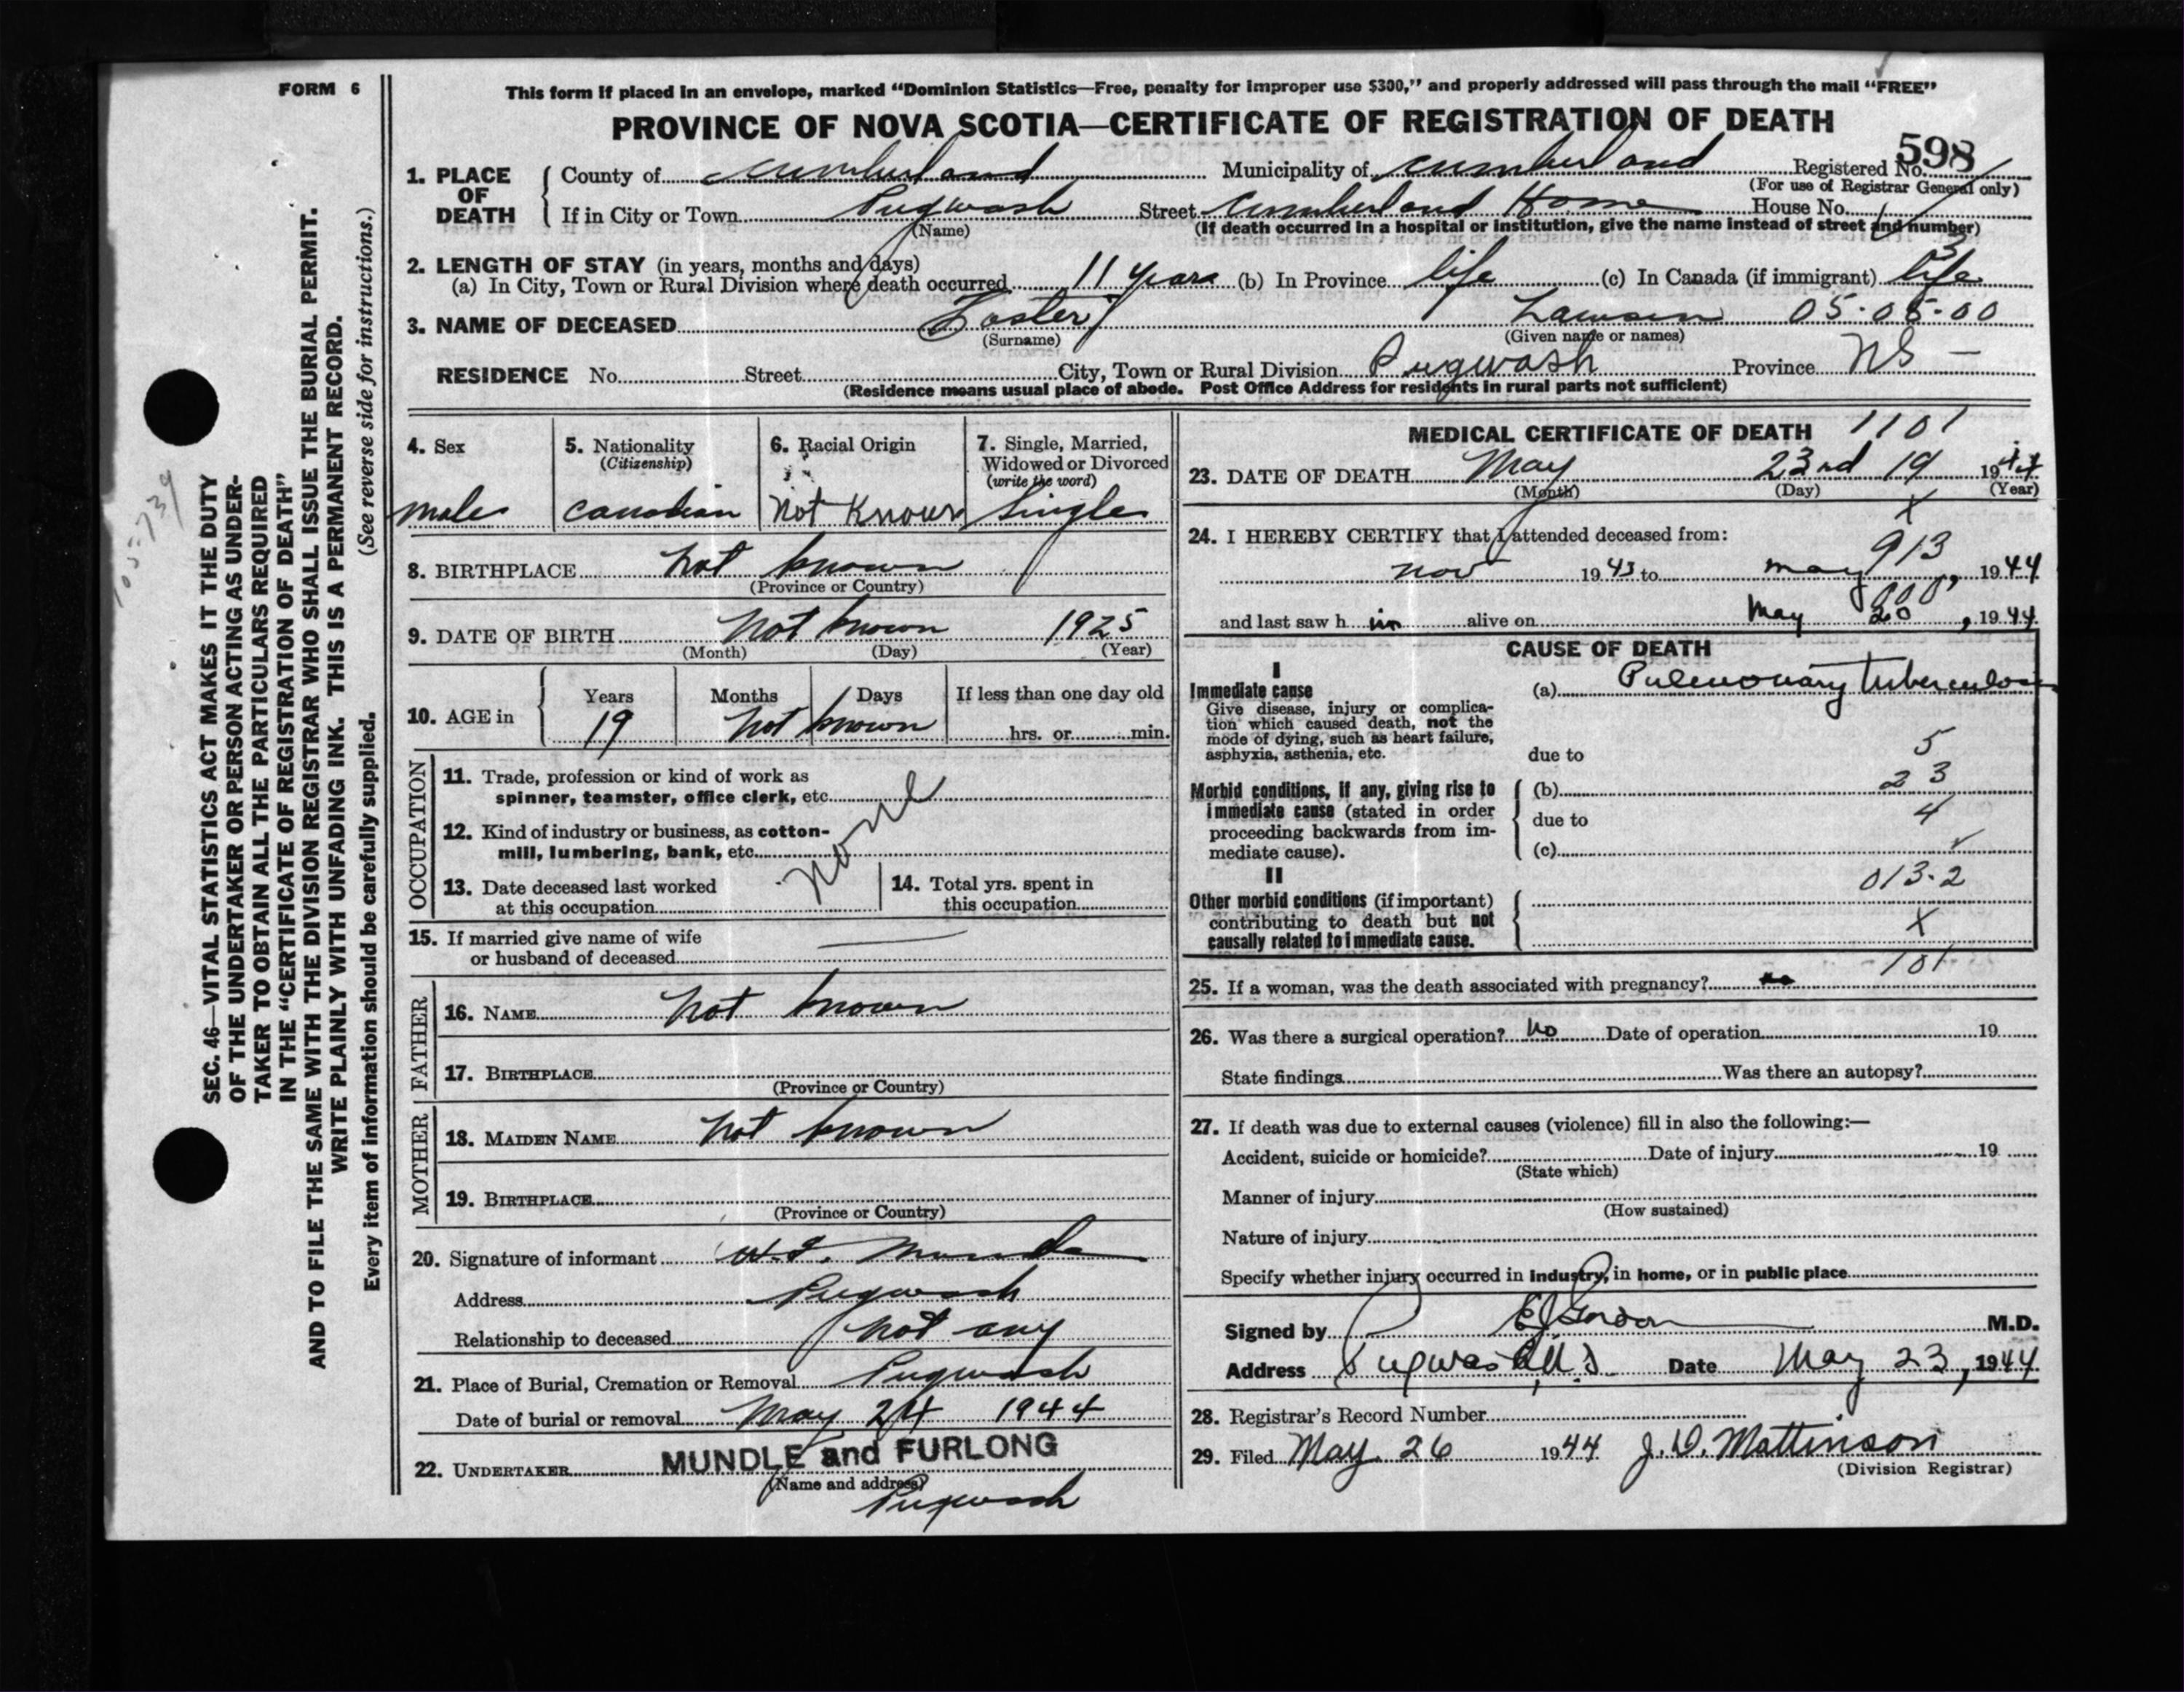 FORM 6
This form if placed in an envelope, marked "Dominion Statistics—Free, penalty for improper use $300," and properly addressed will pass through the mail "FREE"
PROVINCE OF NOVA SCOTIA—CERTIFICATE OF REGISTRATION OF DEATH
598
1. PLACE OF DEATH
County of Cumberland Municipality of Cumberland Registered No.
(For use of Registrar General only)
If in City or Town Pugwash Street Cumberland Home House No.
(Name) (If death occurred in a hospital or institution, give the name instead of street and number)
2. LENGTH OF STAY (in years, months and days)
(a) In City, Town or Rural Division where death occurred 11 years (b) In Province life (c) In Canada (if immigrant) life
3. NAME OF DECEASED Foster Lawson 05-05-00
(Surname) (Given name or names)
RESIDENCE No. Street City, Town or Rural Division Pugwash Province NS —
(Residence means usual place of abode. Post Office Address for residents in rural parts not sufficient)
4. Sex
male
5. Nationality
(Citizenship)
Canadian
6. Racial Origin
Not Known
7. Single, Married,
Widowed or Divorced
(write the word)
Single
8. BIRTHPLACE not known
(Province or Country)
9. DATE OF BIRTH Not known 1925
(Month) (Day) (Year)
10. AGE in
Years Months Days If less than one day old
19 Not known hrs. or min.
OCCUPATION
11. Trade, profession or kind of work as
spinner, teamster, office clerk, etc.
12. Kind of industry or business, as cotton-
mill, lumbering, bank, etc.
None
13. Date deceased last worked
at this occupation
14. Total yrs. spent in
this occupation
15. If married give name of wife
or husband of deceased
FATHER
16. NAME not known
17. BIRTHPLACE
(Province or Country)
MOTHER
18. MAIDEN NAME not known
19. BIRTHPLACE
(Province or Country)
20. Signature of informant
Address Pugwash
Relationship to deceased not any
21. Place of Burial, Cremation or Removal Pugwash
Date of burial or removal May 24 1944
22. UNDERTAKER MUNDLE and FURLONG
(Name and address)
Pugwash
MEDICAL CERTIFICATE OF DEATH 1101
23. DATE OF DEATH May 23rd 19 1944
(Month) (Day) (Year)
X
24. I HEREBY CERTIFY that I attended deceased from:
913
Nov 1943 to May 1944
000
and last saw h im alive on May 20, 1944
CAUSE OF DEATH
I
Immediate cause
Give disease, injury or complica-
tion which caused death, not the
mode of dying, such as heart failure,
asphyxia, asthenia, etc.
(a) Pulmonary tuberculosis
5
due to
Morbid conditions, if any, giving rise to
immediate cause (stated in order
proceeding backwards from im-
mediate cause).
(b) 23
due to 4
(c)
II
Other morbid conditions (if important)
contributing to death but not
causally related to immediate cause.
013-2
X
101
25. If a woman, was the death associated with pregnancy?
26. Was there a surgical operation? No Date of operation 19
State findings Was there an autopsy?
27. If death was due to external causes (violence) fill in also the following:—
Accident, suicide or homicide? Date of injury 19
(State which)
Manner of injury
(How sustained)
Nature of injury
Specify whether injury occurred in industry, in home, or in public place
Signed by M.D.
Address Pugwash N.S Date May 23, 1944
28. Registrar's Record Number
29. Filed May 26 1944 J. D. Mattinson
(Division Registrar)
SEC. 46—VITAL STATISTICS ACT MAKES IT THE DUTY
OF THE UNDERTAKER OR PERSON ACTING AS UNDER-
TAKER TO OBTAIN ALL THE PARTICULARS REQUIRED
IN THE "CERTIFICATE OF REGISTRATION OF DEATH"
AND TO FILE THE SAME WITH THE DIVISION REGISTRAR WHO SHALL ISSUE THE BURIAL PERMIT.
WRITE PLAINLY WITH UNFADING INK. THIS IS A PERMANENT RECORD.
(See reverse side for instructions.)
Every item of information should be carefully supplied.